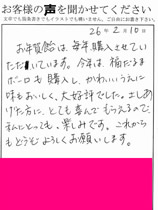 お客様の声を聞かせてください
文章でも箇条書きでもイラストでも構いません。ご自由にお書き下さい。
26年2月10日
お年賀給は、毎年、購入させてい
ただいています。今年は、福だるま
ボーロも購入し、かわいいうえに
味もおいしく、大好評でした。さしあ
げた方に、とても喜んでもらえるので、
私にとっても、楽しみです。これから
もどうぞよろしくお願いします。